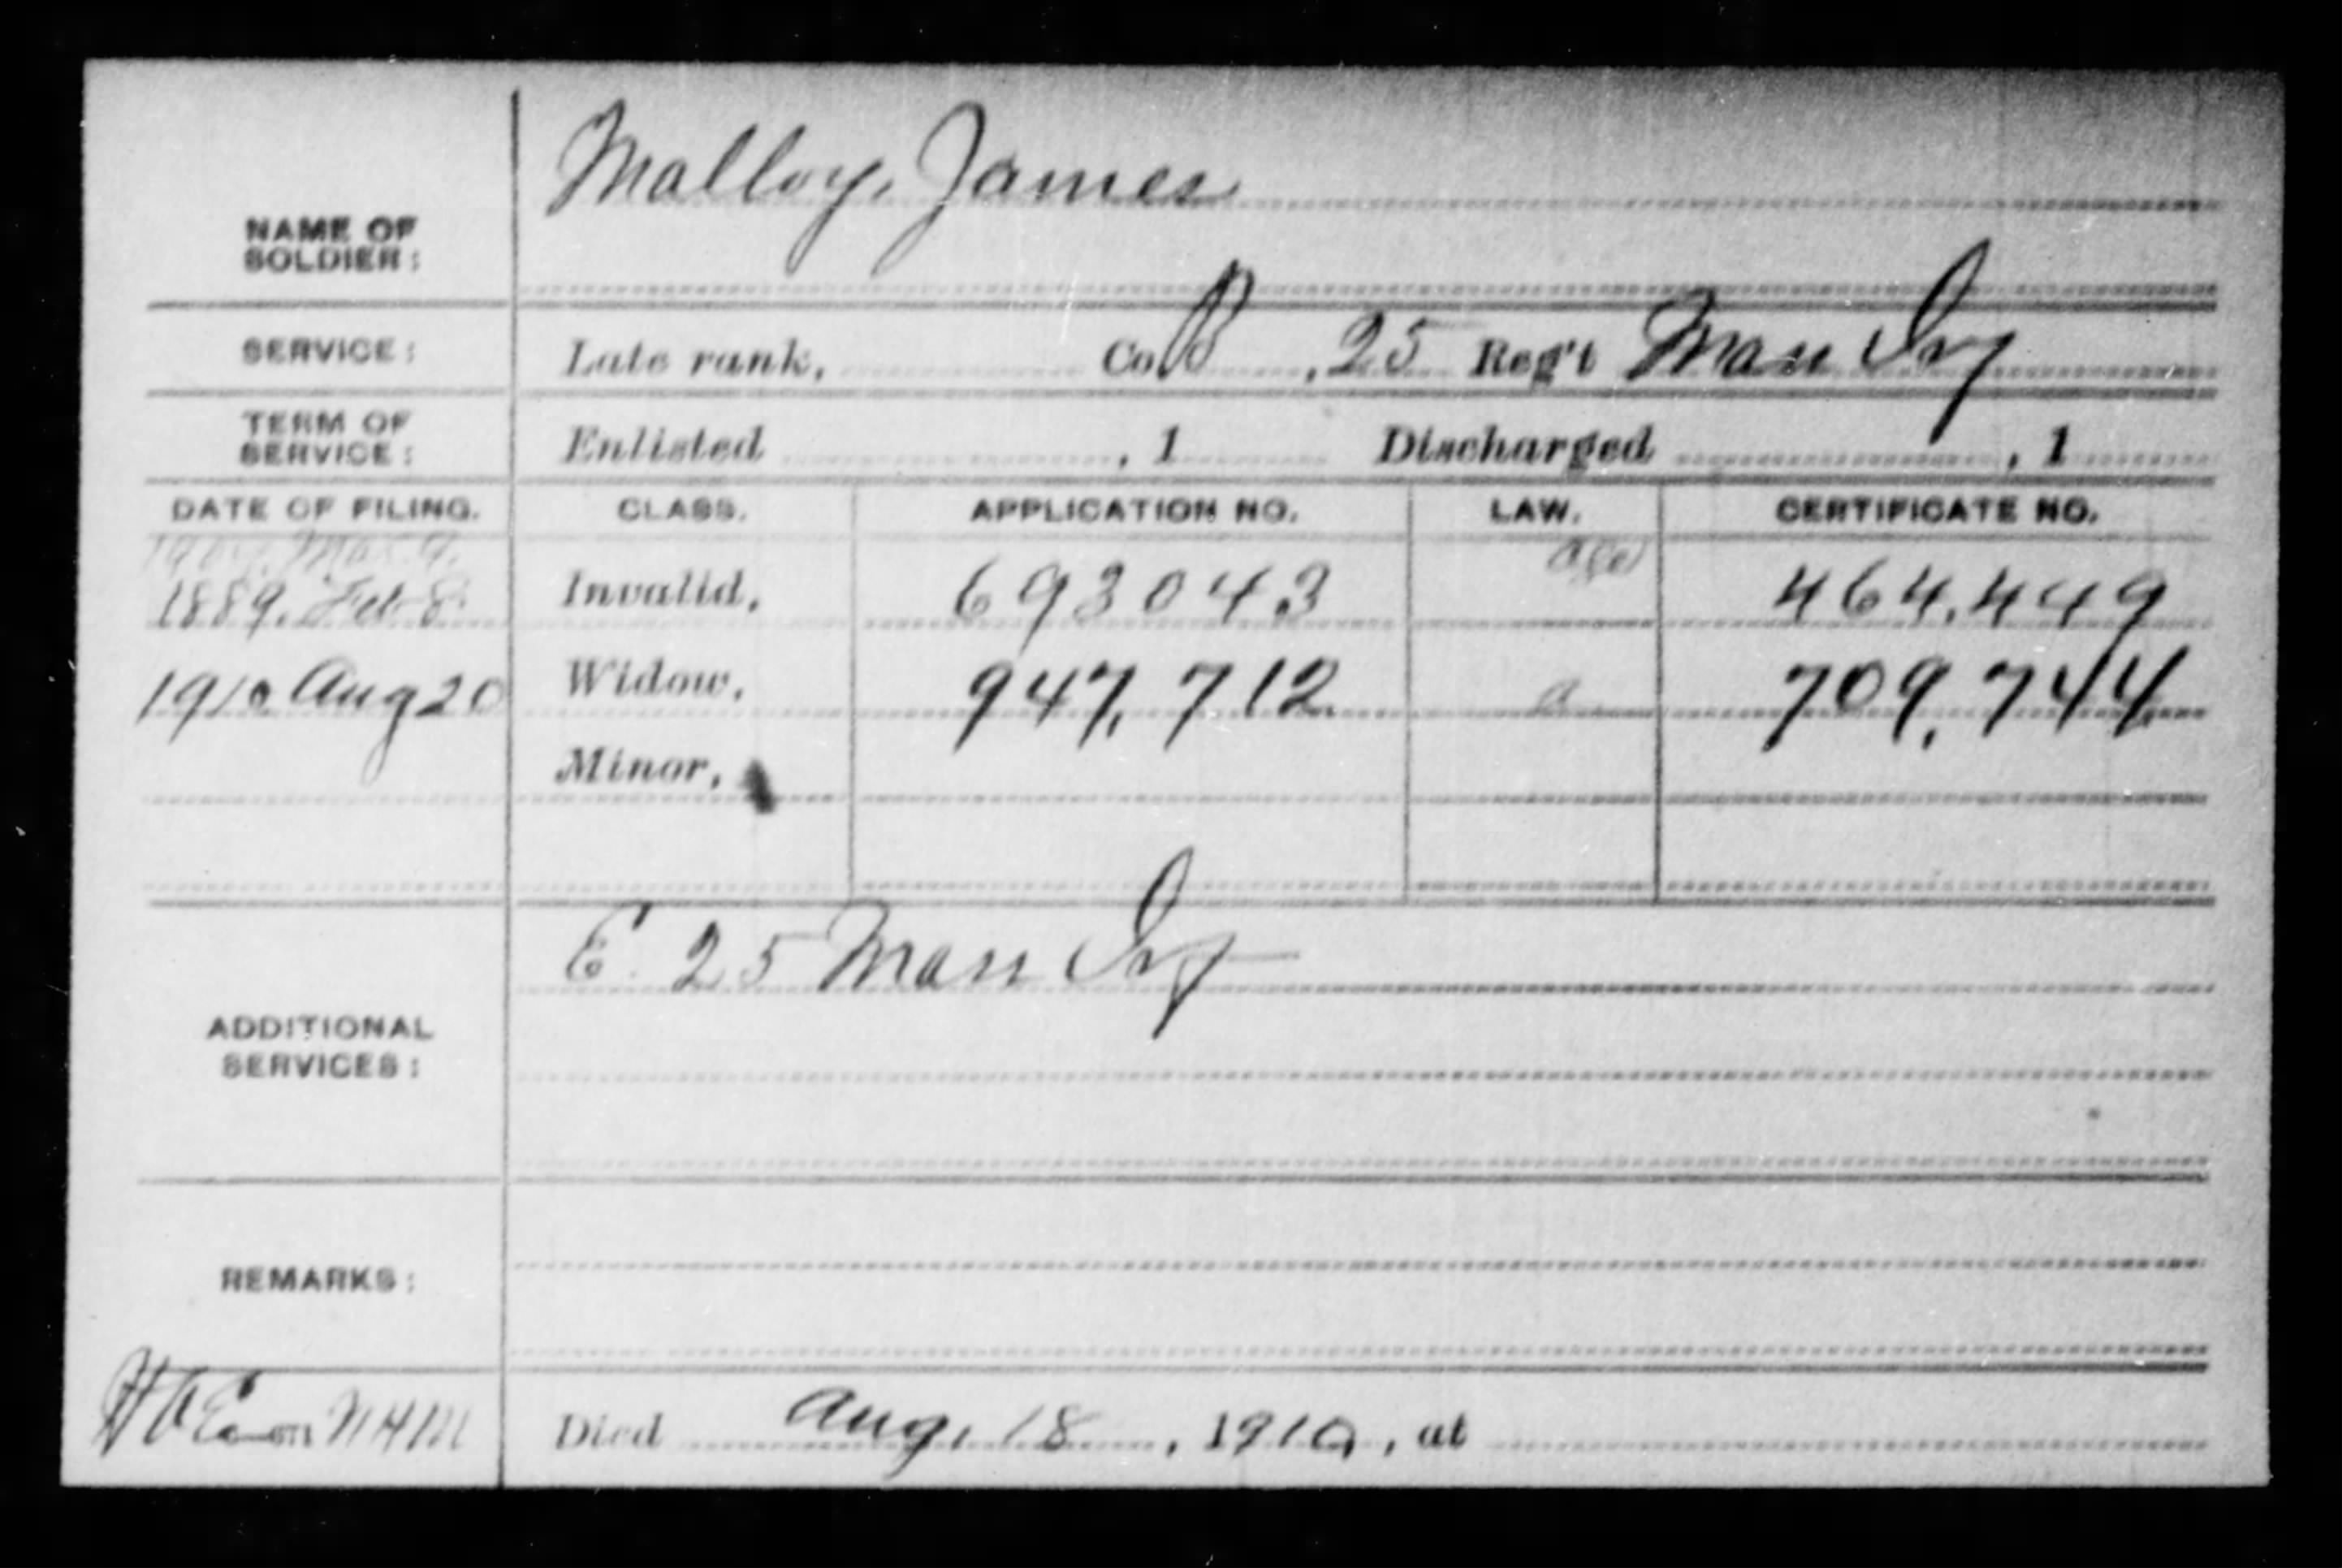 NAME OF
SOLDIER:
Malloy, James
SERVICE: Late rank, Co. B, 25 Reg't Mass Inf
TERM OF
SERVICE: Enlisted , 1 Discharged , 1
DATE OF FILING. CLASS. APPLICATION NO. LAW. CERTIFICATE NO.
Mar. 9. age
1889. Feb 8. Invalid, 693043 464,449
1910 Aug 20 Widow, 947,712 a 709,744
Minor,
E 25 Mass Inf
ADDITIONAL
SERVICES:
REMARKS:
Died Aug. 18, 1910, at